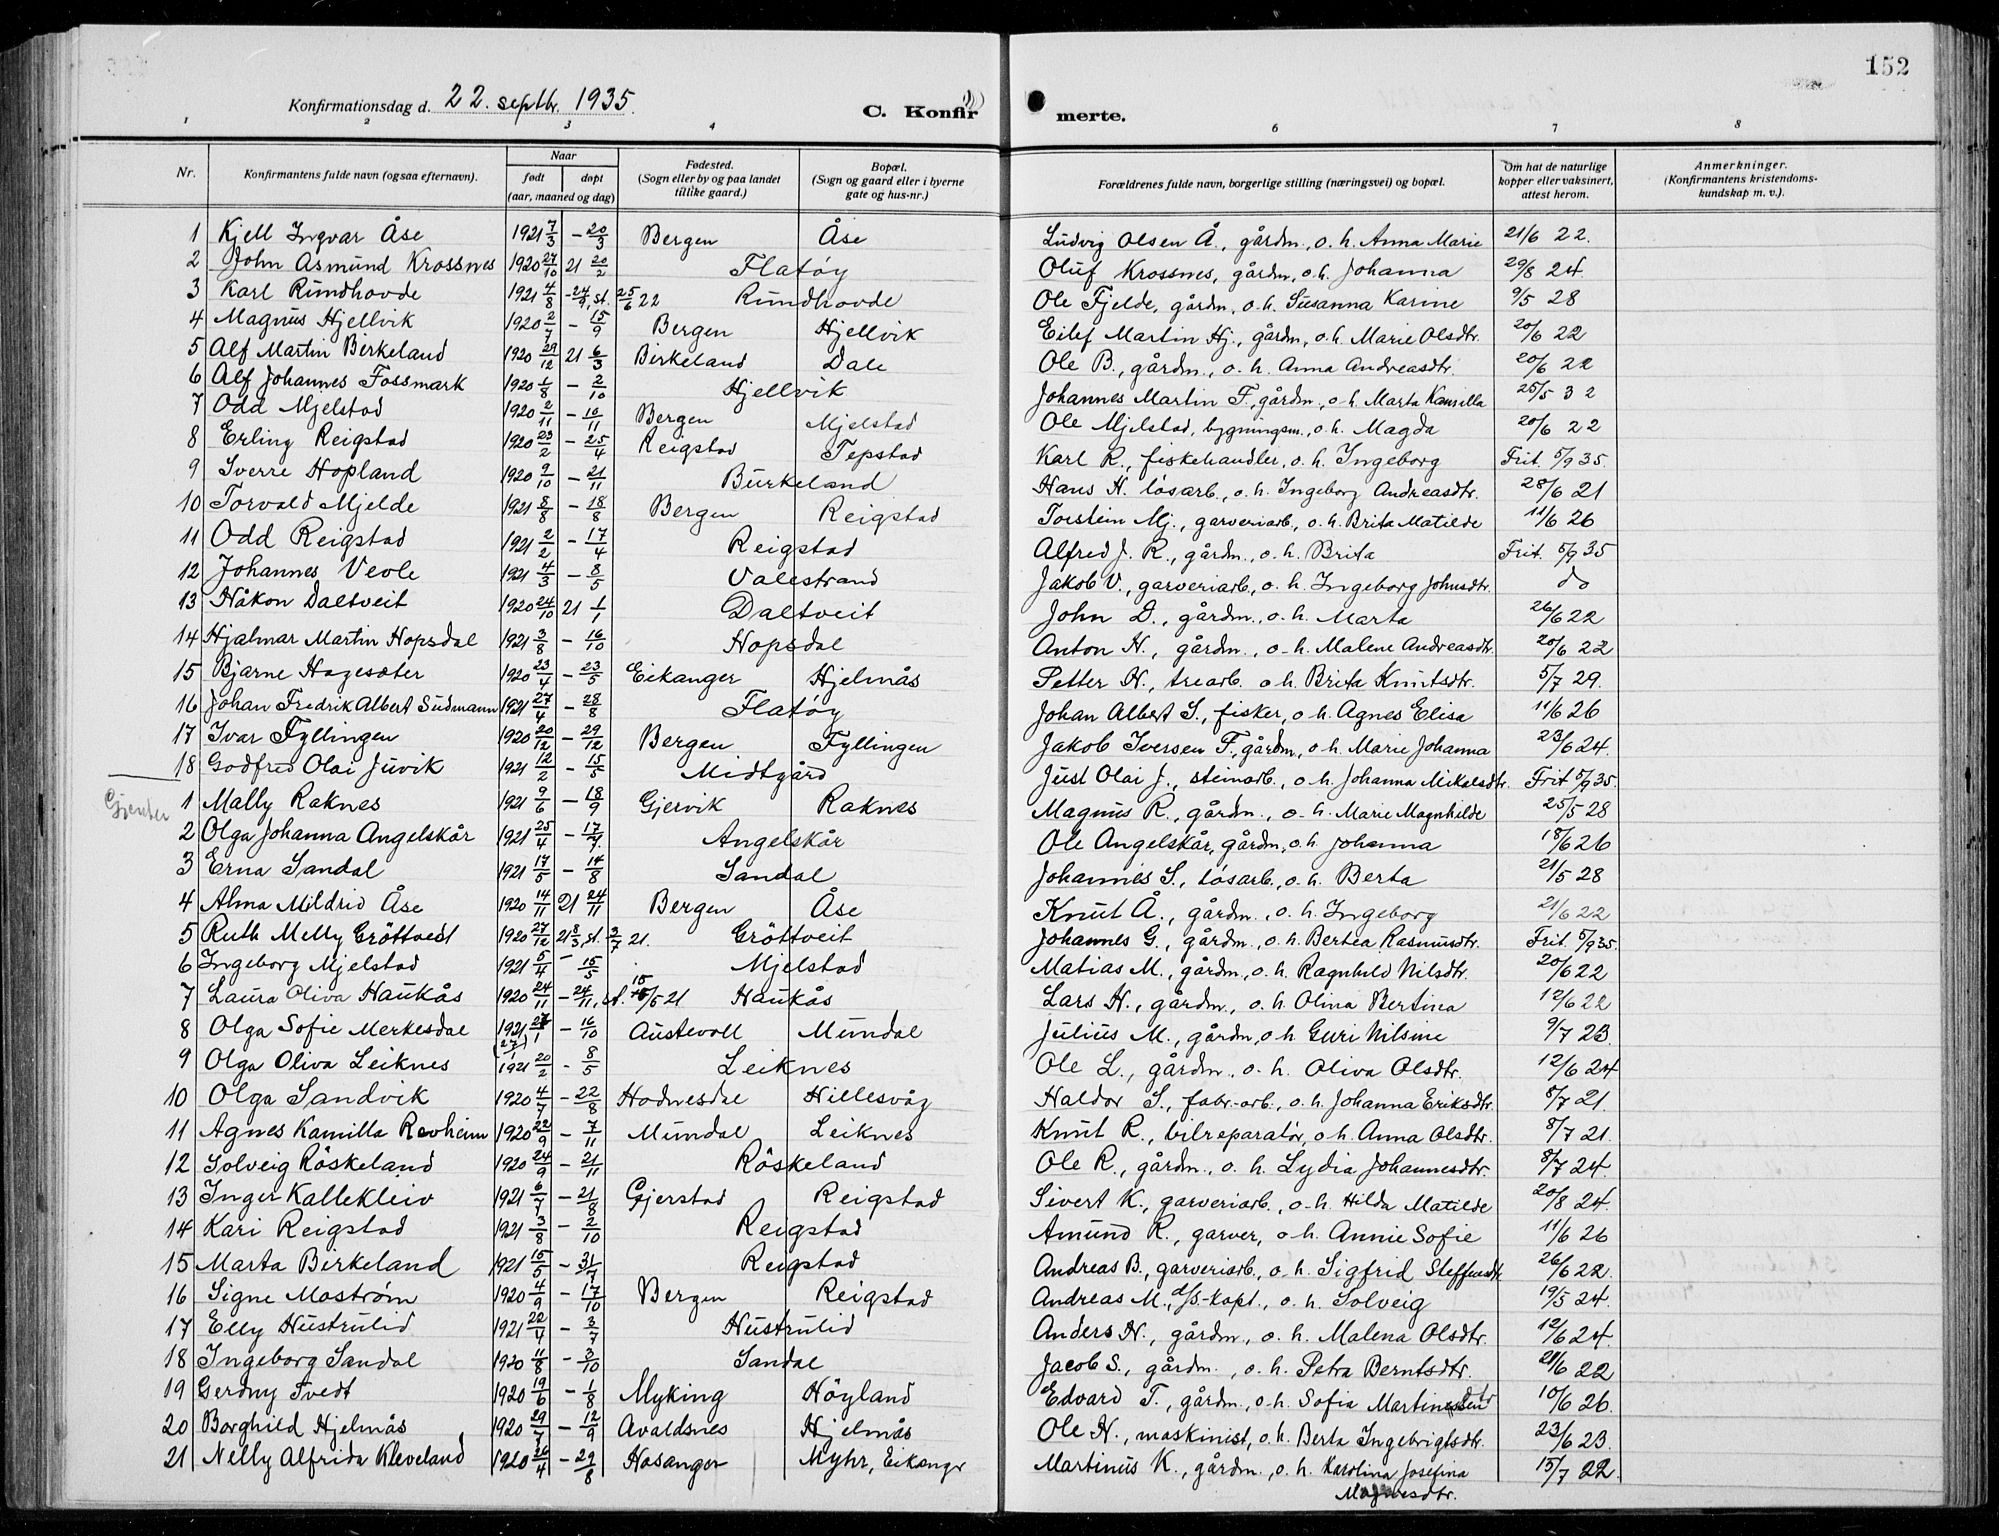 152
Konfirmationsdag d. 22. septbr. 1935.
C. Konfirmerte.
1 2 3 4 6 7 8
Nr. Konfirmantens fulde navn (ogsaa efternavn). Naar født døpt (aar, maaned og dag) Fødested. (Sogn eller by og paa landet tillike gaard.) Bopæl. (Sogn og gaard eller i byerne gate og hus-nr.) Forældrenes fulde navn, borgerlige stilling (næringsvei) og bopæl. Om hat de naturlige kopper eller vaksinert, attest herom. Anmerkninger. (Konfirmantens kristendomskundskap m. v.).
1 Kjell Ingvar Åse 1921 7/3 – 20/3 Bergen Åse Ludvig Olsen Å., gårdm., o. h. Anna Marie 21/6 22.
2 John Asmund Krossnes 1920 27/10 21 20/2 Flatøy Oluf Krossnes, gårdm., o. h. Johanna 29/8 24.
3 Karl Rundhovde 1921 4/8 – 24/9, st. 25/6 22 Rundhovde Ole Fjelde, gårdm., o. h. Susanna Karine 9/5 28
4 Magnus Hjellvik 1920 2/7 – 15/9 Bergen Hjellvik Eilef Martin Hj., gårdm., o. h. Marie Olsdtr. 20/6 22
5 Alf Martin Berkeland 1920 29/12 21 6/3 Birkeland Dale Ole B., gårdm., o. h. Anna Andreasdtr. 20/6 22
6 Alf Johannes Fossmark 1920 1/8 – 2/10 Hjellvik Johannes Martin F., gårdm., o. h. Marta Kamilla 25/5 32
7 Odd Mjelstad 1920 2/11 – 16/11 Bergen Mjelstad Ole Mjelstad, bygningsm., o. h. Magda 20/6 22
8 Erling Reigstad 1920 23/2 – 25/4 Reigstad Tepstad Karl R., fiskehandler, o. h. Ingeborg Frit. 5/9 35.
9 Sverre Hopland 1920 9/10 – 21/11 Burkeland Hans H. løsarb., o. h. Ingeborg Andreasdtr. 28/6 21
10 Torvald Mjelde 1921 8/8 – 18/8 Bergen Reigstad Torstein Mj., garveriarb., o. h. Brita Matilde 11/6 26
11 Odd Reigstad 1921 2/2 – 17/4 Reigstad Alfred J. R., gårdm., o. h. Brita Frit. 5/9 35
12 Johannes Veole 1921 4/3 – 8/5 Valestrand Jakob V., garveriarb., o. h. Ingeborg Johnsdtr. do
13 Håkon Daltveit 1920 24/10 21 1/1 Daltveit John D., gårdm., o. h. Marta 26/6 22
14 Hjalmar Martin Hopsdal 1921 3/8 – 16/10 Hopsdal Anton H., gårdm., o. h. Malene Andreasdtr. 20/6 22
15 Bjarne Hagesæter 1920 23/4 – 23/5 Eikanger Hjelmås Petter H., trearb. o. h. Brita Knutsdtr. 5/7 29.
16 Johan Fredrik Albert Sudmann 1921 27/4 – 28/8 Flatøy Johan Albert S., fisker, o. h. Agnes Elisa 11/6 26
17 Ivar Fyllingen 1920 20/12 – 29/12 Bergen Fyllingen Jakob Iversen F., gårdm., o. h. Marie Johanna 23/6 24.
18 Godfred Olai Juvik 1921 12/2 – 15/5 Midtgård Just Olai J., steinarb., o. h. Johanna Mikalsdtr. Frit 5/9 35.
Gjenter
1 Mally Raknes 1921 9/6 – 18/9 Gjervik Raknes Magnus R., gårdm., o. h. Marie Magnhilde 25/5 28
2 Olga Johanna Angelskår 1921 25/4 – 17/7 Angelskår Ole Angelskår, gårdm., o. h. Johanna 18/6 26
3 Erna Sandal 1921 17/5 – 14/8 Sandal Johannes S., løsarb., o. h. Berta 21/5 28
4 Alma Mildrid Åse 1920 14/11 21 24/11 Bergen Åse Knut Å., gårdm., o. h. Ingeborg 21/6 22
5 Ruth Melly Gröttveit 1920 27/12 21 8/3, st. 3/7 21. Gröttveit Johannes G., gårdm., o. h. Bertea Rasmusdtr. Frit. 5/9 35.
6 Ingeborg Mjelstad 1921 5/4 – 15/5 Mjelstad Matias M., gårdm., o. h. Ragnhild Nilsdtr. 20/6 22
7 Laura Oliva Haukås 1920 24/11 – 24/11, st. 15/5 21 Haukås Lars H., gårdm., o. h. Olina Bertina 12/6 22
8 Olga Sofie Merkesdal 1921 27/1 – 16/10 Austevoll Mundal Julius M., gårdm., o. h. Guri Nilsine 9/7 23.
(27/1)
9 Olga Oliva Leiknes 1921 20/2 - 8/5 Leiknes Ole L., gårdm., o. h. Oliva Olsdtr. 12/6 24
10 Olga Sandvik 1920 4/7 – 22/8 Hodnesdal Hillesvåg Haldor S., fabr.-arb., o. h. Johanna Eriksdtr. 8/7 21.
11 Agnes Kamilla Revheim 1920 22/9 – 7/11 Mundal Leiknes Knut R., bilreparatör, o. h. Anna Olsdtr. 8/7 21.
12 Solveig Röskeland 1920 24/9 – 21/11 Röskeland Ole R., gårdm., o. h. Lydia Johannesdtr. 8/7 24.
13 Inger Kallekleiv 1921 6/7 – 21/8 Gjerstad Reigstad Sivert K., garveriarb., o. h. Hilda Matilde 20/8 24.
14 Kari Reigstad 1921 3/8 – 2/10 Reigstad Amund R., garver, o. h. Annie Sofie 11/6 26
15 Marta Birkeland 1921 15/5 – 31/7 Reigstad Andreas B., garveriarb., o. h. Sigfrid Steffensdtr 26/6 22.
16 Signe Mostrøm 1920 4/9 – 17/10 Bergen Reigstad Andreas M., d/s-kapt., o. h. Solveig 19/5 24.
17 Elly Hustrulid 1921 22/4 – 3/7 Hustrulid Anders H., gårdm., o. h. Malena Olsdtr. 12/6 24.
18 Ingeborg Sandal 1920 11/8 – 3/10 Sandal Jacob S., gårdm., o. h. Petra Berntsdtr. 21/6 22
19 Gerdny Tvedt 1920 19/6 – 1/8 Myking Höyland Edvard T., gårdm., o. h. Sofia Martinsdtr 10/6 26.
20 Borghild Hjelmås 1920 29/7 – 12/9 Avaldsnes Hjelmås Ole H., maskinist, o. h. Berta Ingebrigtsdtr. 23/6 23.
21 Nelly Alfrida Kleveland 1920 26/4 – 29/8 Hosanger Myhr, Eikangr Martinus K., gårdm., o. h. Karolina Josefina 15/7 22.
Magnesdtr.